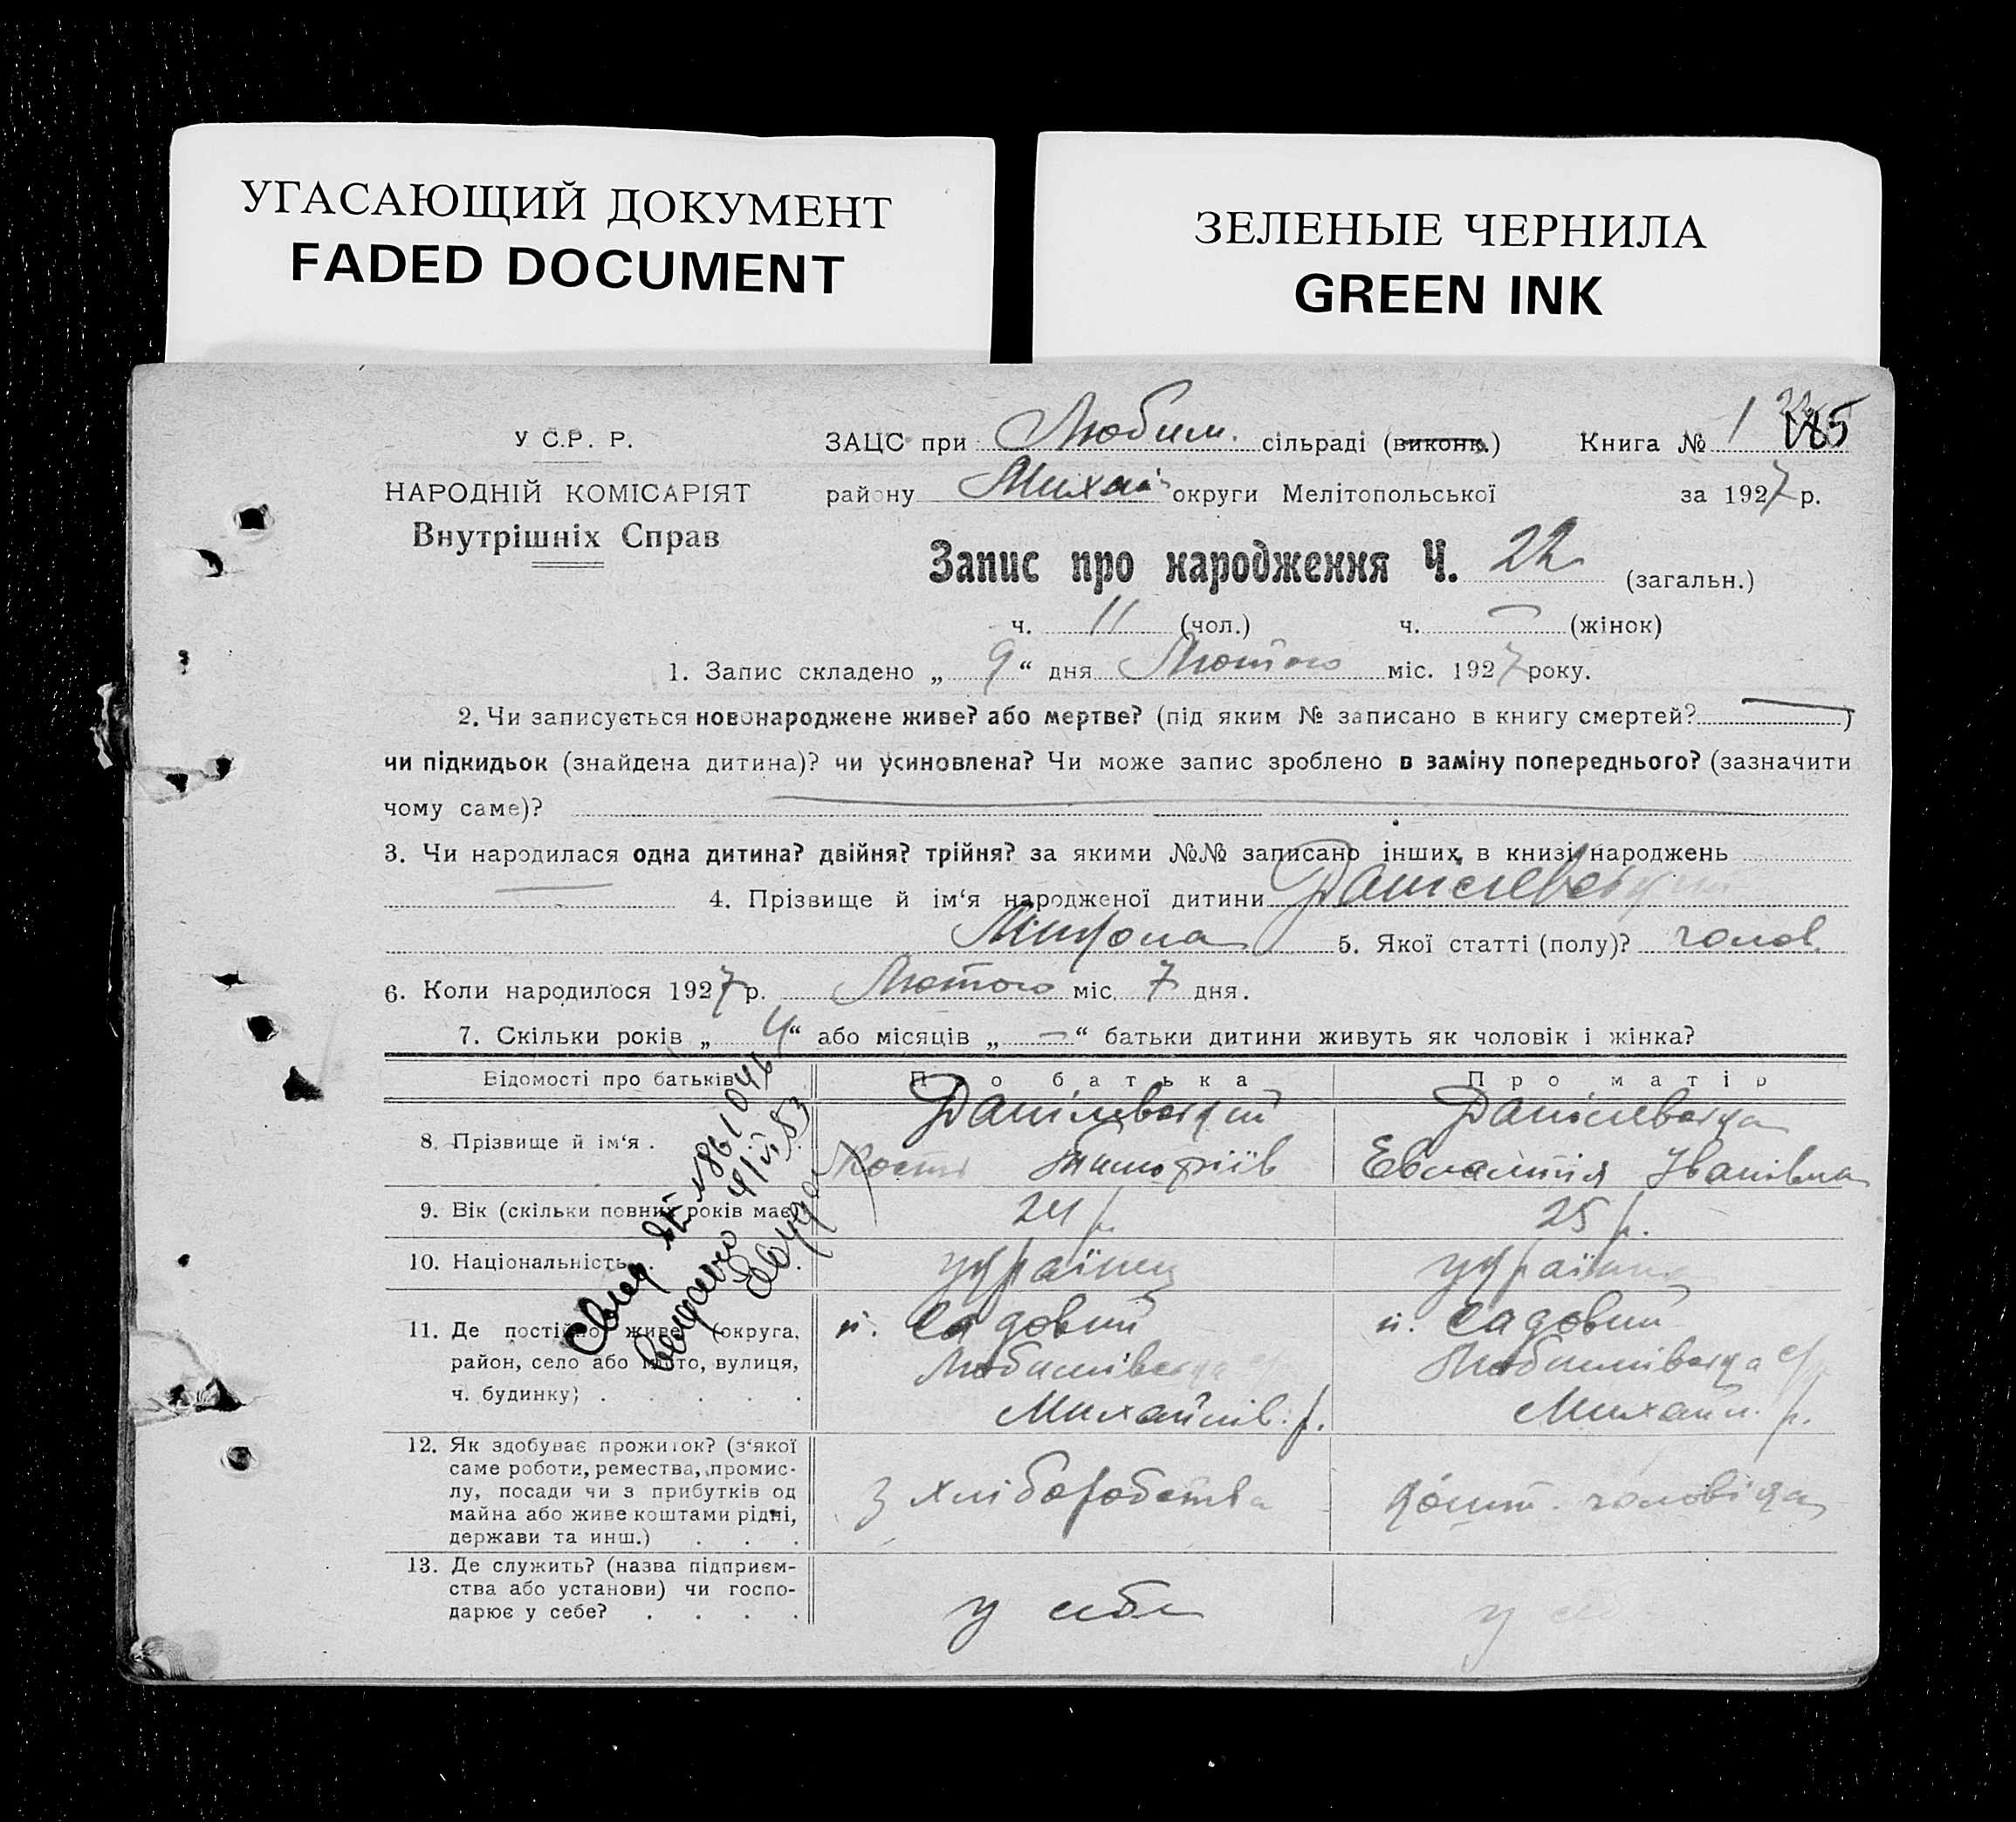 УГАСАЮЩИЙ ДОКУМЕНТ
FADED DOCUMENT
ЗЕЛЕНЫЕ ЧЕРНИЛА
GREEN INK
У С.Р. Р.
НАРОДНІЙ КОМІСАРІЯТ
Внутрішніх Справ
ЗАЦС при Любим. сільраді (виконк.) Книга № 1 185
району Михай округи Мелітопольської за 1927 р.
Запис про народження Ч. 22 (загальн.)
ч. 11 (чол.) ч. — (жінок)
1. Запис складено „ 9 “ дня Лютого міс. 1927 року.
2. Чи записується новонароджене живе? або мертве? (під яким № записано в книгу смертей? — )
чи підкидьок (знайдена дитина)? чи усиновлена? Чи може запис зроблено в заміну попереднього? (зазначити
чому саме)?
3. Чи народилася одна дитина? двійня? трійня? за якими №№ записано інших в книзі народжень
— 4. Прізвище й ім‘я народженої дитини Данілевський
5. Якої статті (полу)? чолов.
6. Коли народилося 1927 р. Лютого міс. 7 дня.
7. Скільки років „ 4 “ або місяців „ — “ батьки дитини живуть як чоловік і жінка?
Відомості про батьків Про батька Про матір
8. Прізвище й ім‘я . Данілевський Данілевська
Іванівна
9. Вік (скільки повних років має) 24 р. 25 р.
10. Національність . українец українка
11. Де постійно живе (округа, п. Садовий п. Садовий
район, село або місто, вулиця, Любимівська Любимівська с/р
ч. будинку) . . . . . Михайлів. р. Михайл. р.
12. Як здобуває прожиток? (з‘якої
саме роботи, ремества, промис-
лу, посади чи з прибутків од з хліборобства кошт. чоловіка
майна або живе коштами рідні,
держави та инш.) . . .
13. Де служить? (назва підприєм-
ства або установи) чи госпо-
дарює у себе? . . . . у себе у